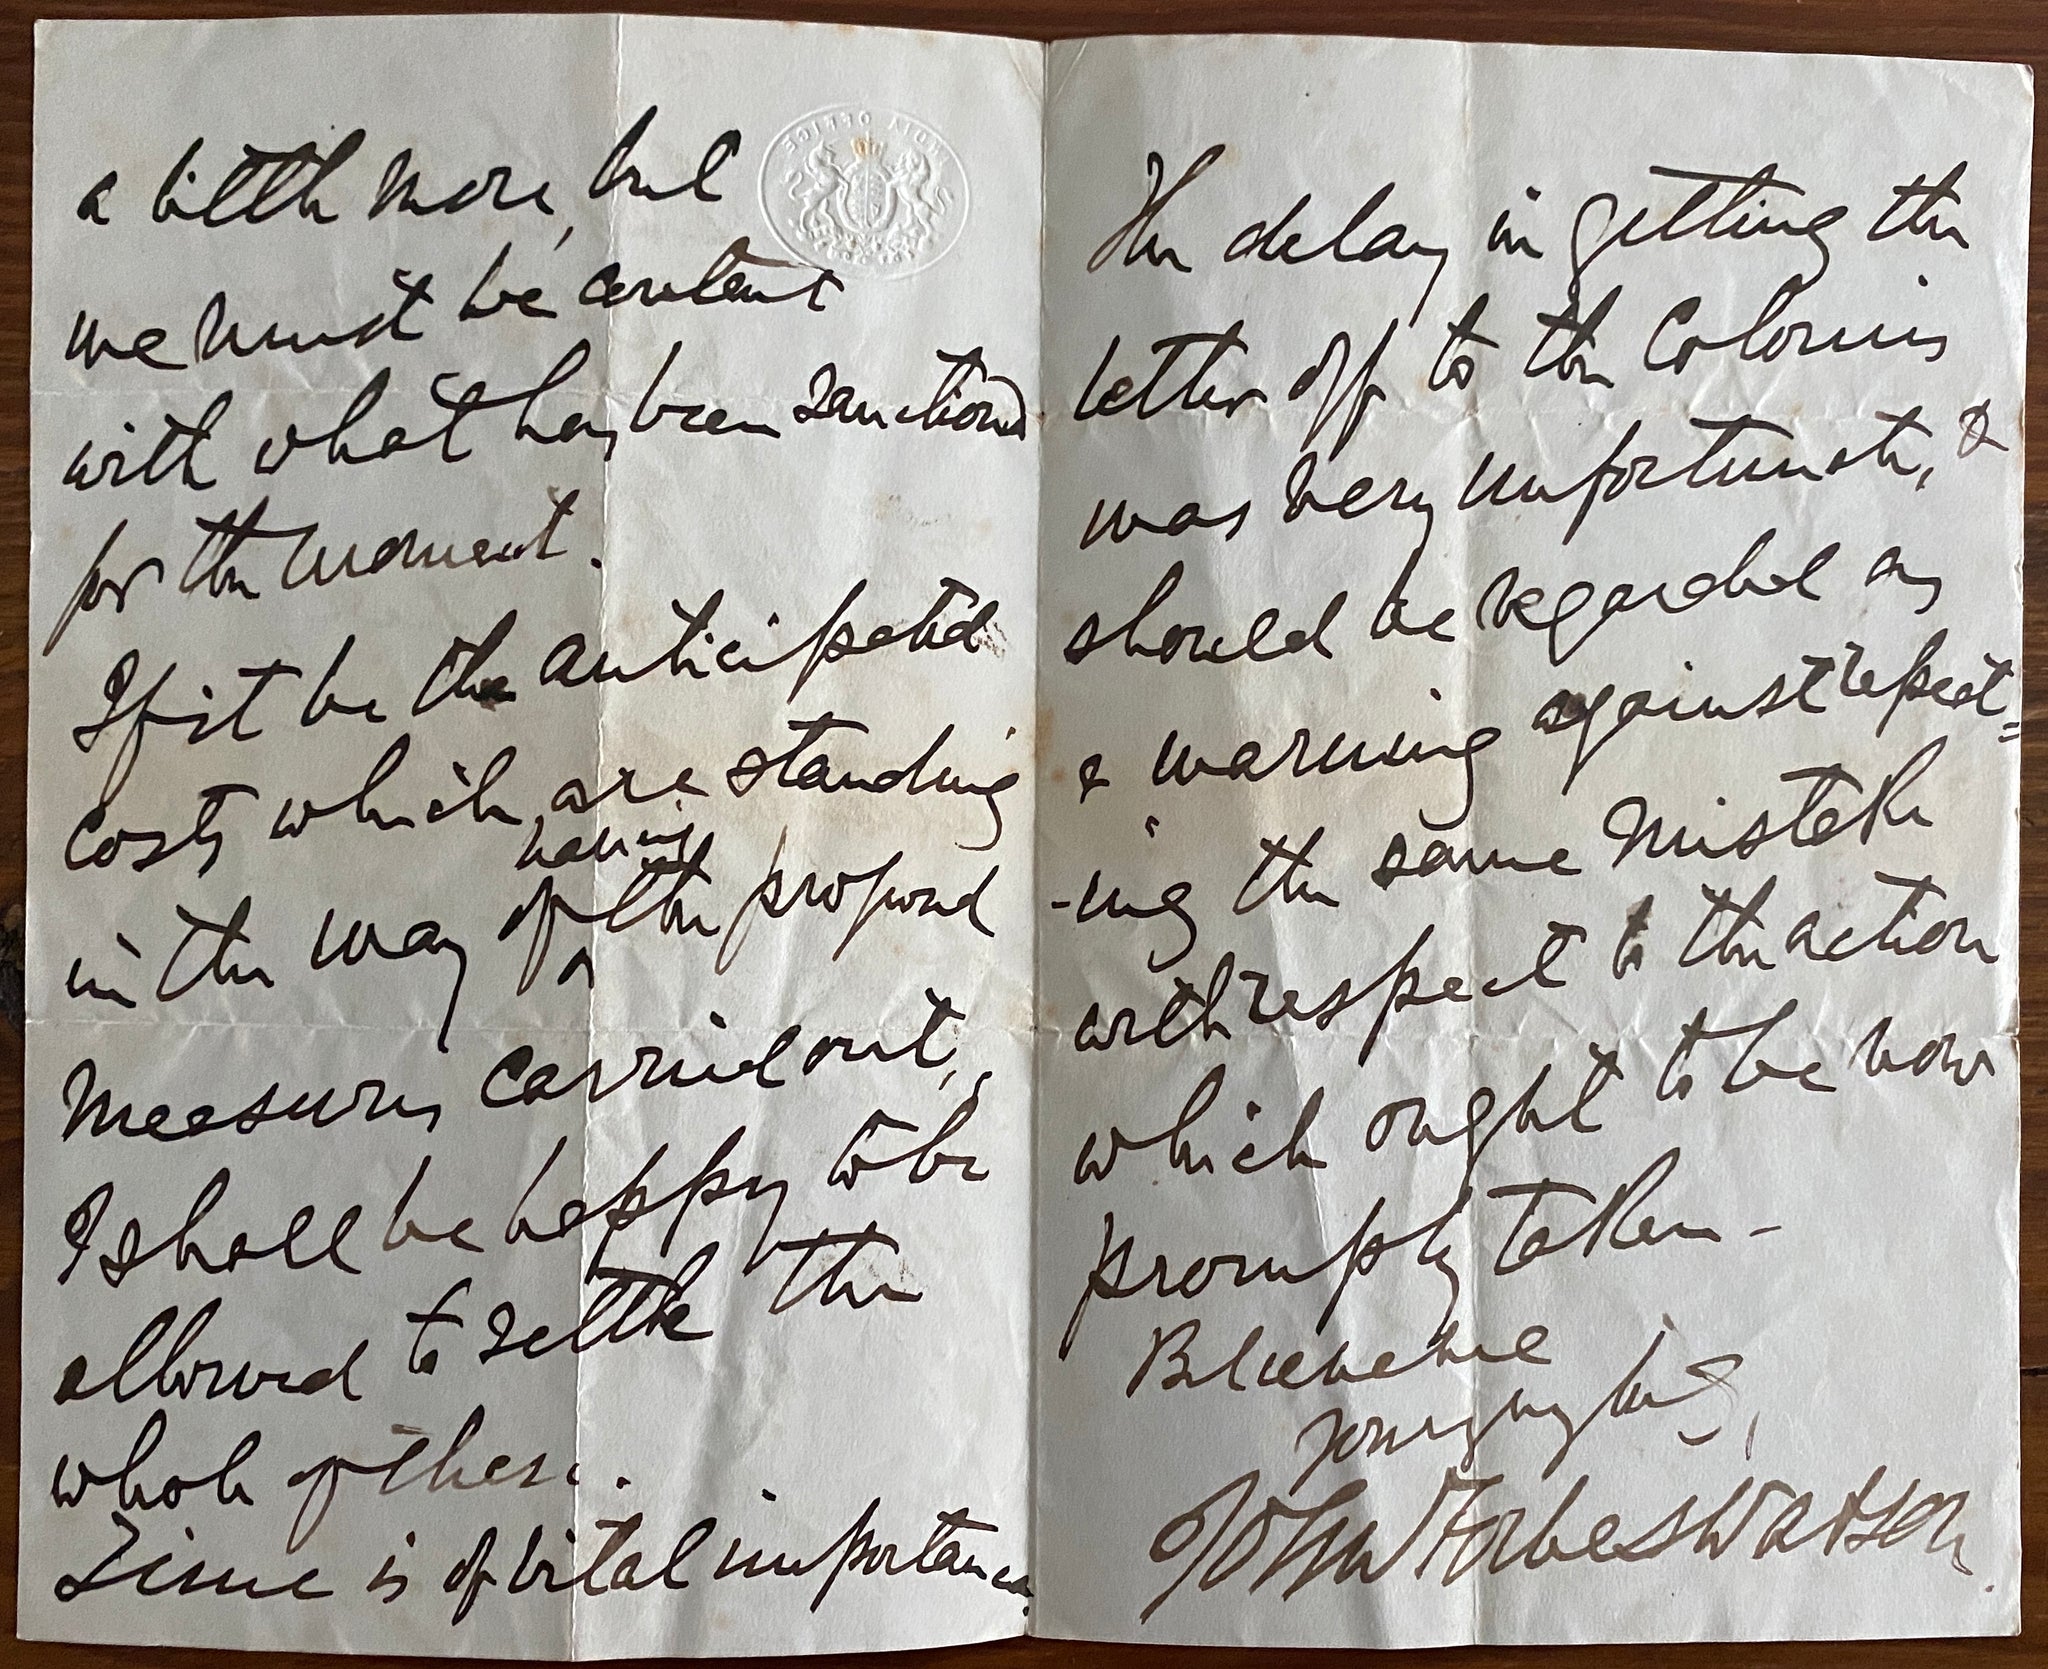 INDIA OFFICE
a little more, but
we must be content
with what has been sanctioned
for the moment.
If it be the anticipated
costs which are standing
in the way of having the proposed
measures carried out,
I shall be happy to be
allowed to settle the
whole of these.
Time is of vital importance.
The delay in getting the
letter off to the Colonies
was very unfortunate, &
should be regarded as
a warning against repeat=
-ing the same mistake
with respect to the action
which ought to be now
promptly taken -
Believe me
yours
John Forbes Watson.